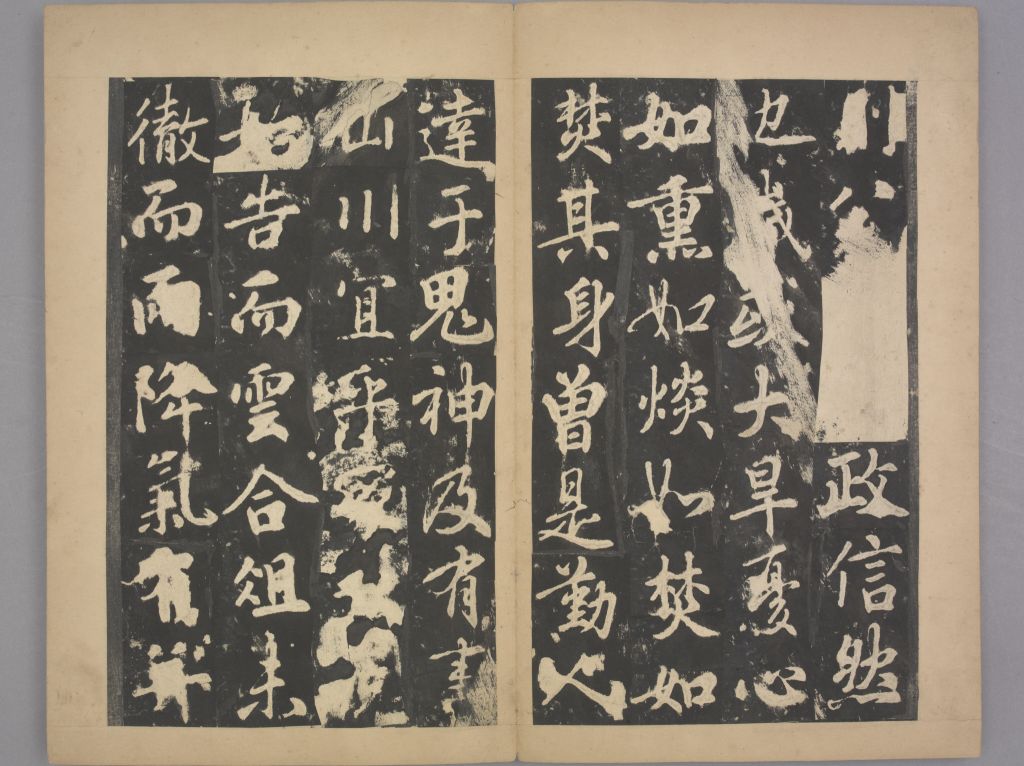 公政信然
也歲或大旱憂心
如熏如惔如焚如
焚其身曾是勤人
達于鬼神及有事
山川宜乎
始告而雲合俎未
徹而雨降氣有